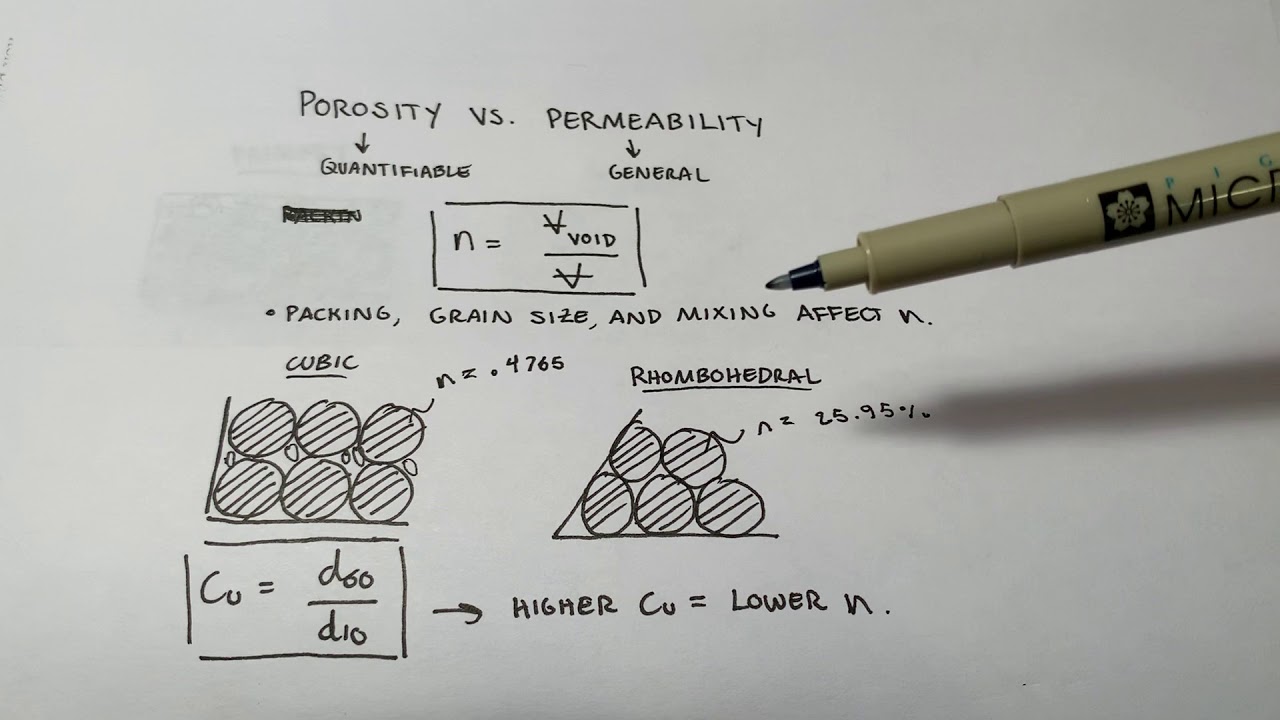 POROSITY VS. PERMEABILITY
↓ ↓
QUANTIFIABLE GENERAL
n = V VOID / V
• PACKING, GRAIN SIZE, AND MIXING AFFECT n.
CUBIC
n = .4765
RHOMBOHEDRAL
n = 25.95%
Cu = d60 / d10 → HIGHER Cu = LOWER n.
PIG
MICR